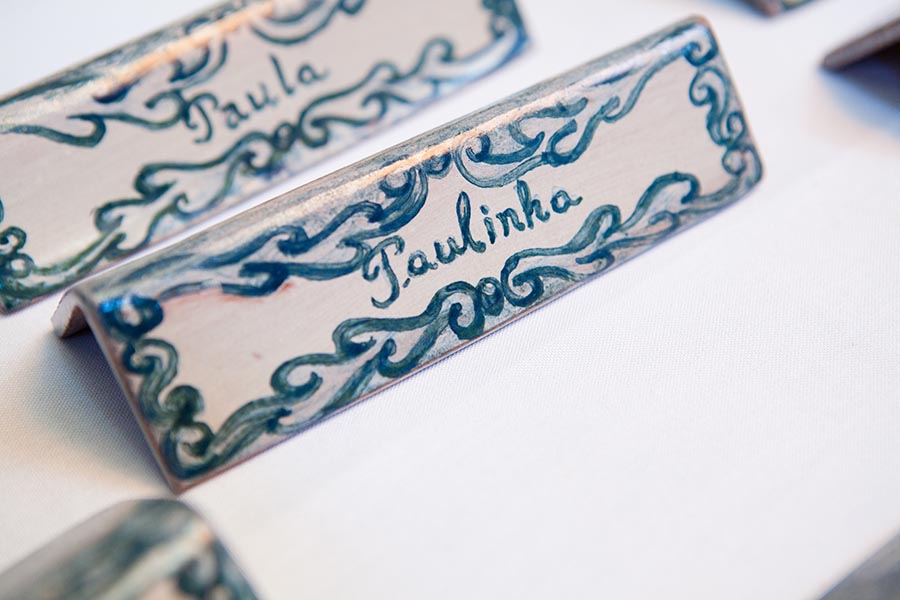 Paula
Paulinha